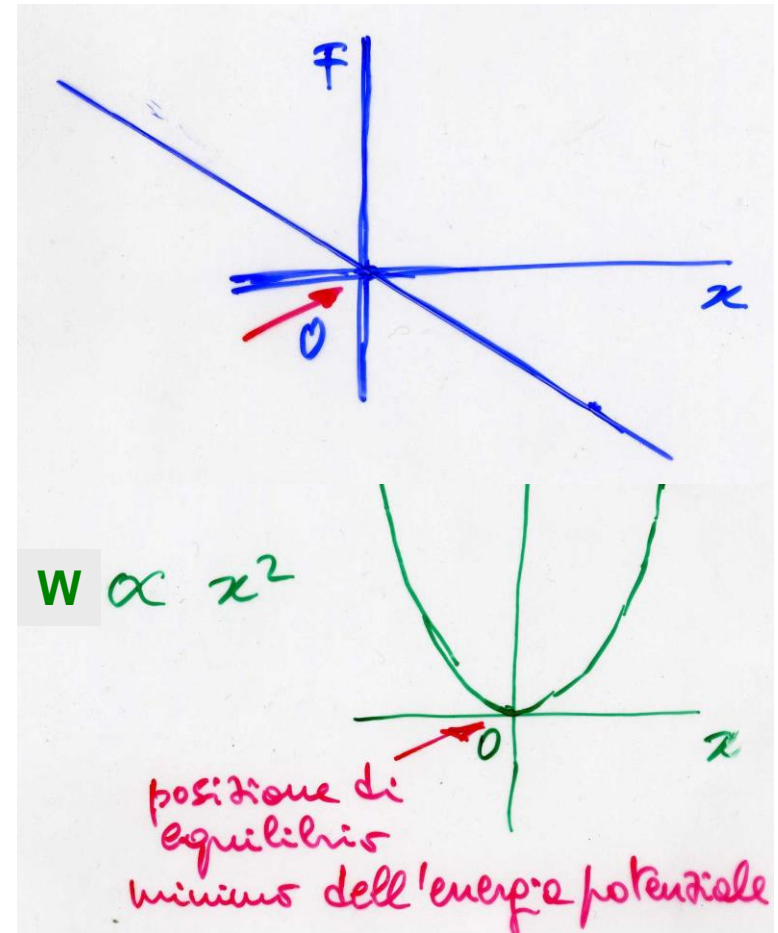 F
x
0
W ∝ x²
0
x
posizione di
equilibrio
minimo dell'energia potenziale